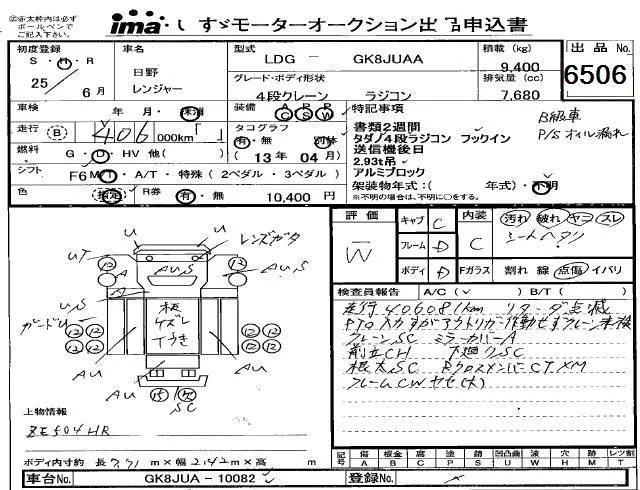 ㊟赤太枠内は必ず
ボールペンで
ご記入下さい。
ima いすゞモーターオークション出品申込書
初度登録 車名 型式 LDG － GK8JUAA 積載 (kg) 9,400 出品No. 6506
S・H・R 25年 6月
日野
レンジャー
グレード・ボディ形状
4段クレーン ラジコン
排気量 (cc) 7,680
車検 年 月・抹消 装備 AC PS PW 特記事項
走行 (B) 406 000km「 」
タコグラフ
有・無 別体
(13年 04月)
燃料 G・D・HV 他( )
シフト F6 MT・A/T・特殊 (2ペダル・3ペダル)
色 指定 R券 有・無 10,400 円
書類2週間
タダノ4段ラジコン フックイン
送信機後日
2.93t吊
アルミブロック
架装物年式:( 年式)・不明
※不明の場合は、不明に○をする。
B級車
P/Sオイル漏れ
評価 W
キャブ C
フレーム D
ボディ D
内装 C
汚れ 破れ ヤコ スレ
シートヘタリ
Fガラス 割れ 線 点傷 イバリ
検査員報告 A/C(✓ ) B/T( )
走行406081km リターダ点滅
PTO入りますがアウトリガー作動せずクレーン未検
クレーンSC ミラーカバーA
前立CH 下廻りSC
根太SC RクロスメンバーCT.XM
フレームCWヤセ(木)
U U レンズガタ
UT 12 12
A AUS A
US 板ズレ US
ガードU 12 12 12 12
12 12 12 12
AU AU
AU 15 15 AU
SC
上物情報
ZE504HR
ボディ内寸約 長 7.71 m×幅 2.42 m×高 m
記号 傷A 板金B 腐C 塗P 錆S 凹凸曲U 波W 穴H 跡M レツ割T
車台No. GK8JUA－10082 登録No.